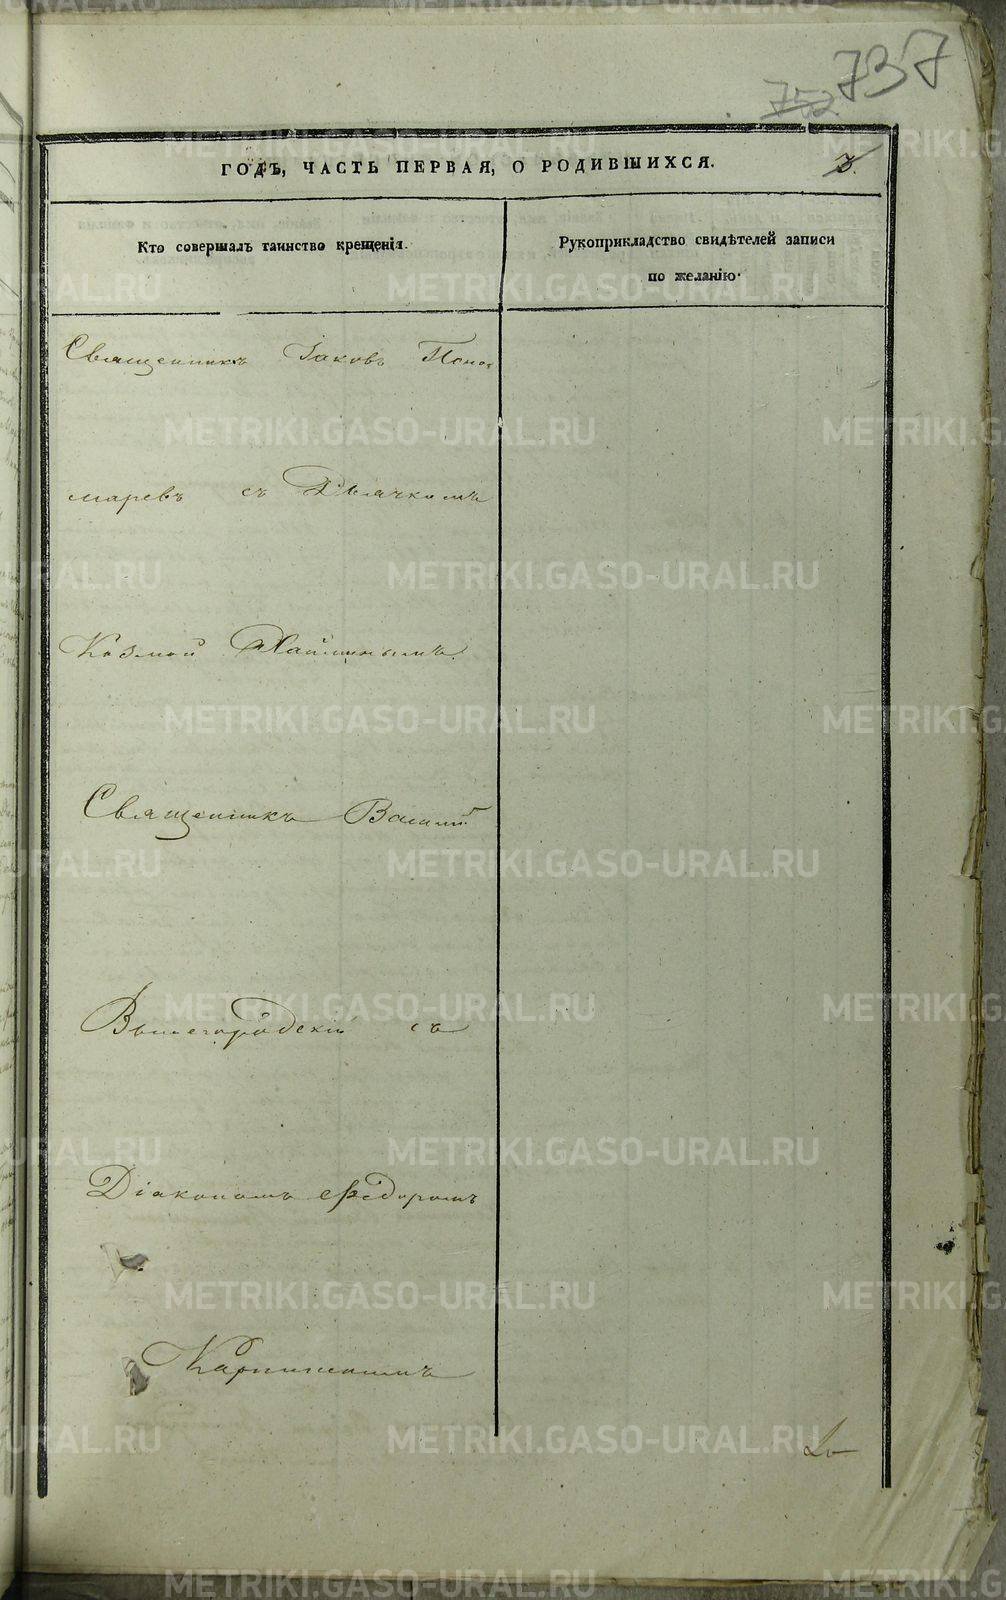 737
752
ГОДЪ, ЧАСТЬ ПЕРВАЯ, О РОДИВШИХСЯ.
3.
Кто совершалъ таинство крещенія.
Рукоприкладство свидѣтелей записи
по желанію.
Священникъ Іаковъ Поно-
маревъ съ Дьячкомъ
Козмой
Священникъ Василій
Вышегородскій съ
Діакономъ Ѳедоромъ
METRIKI.GASO-URAL.RU